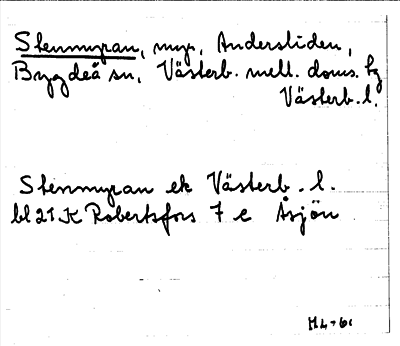 Stenmyran, myr, Andersliden,
Bygdeå sn, Västerb. mell. doms. hg
Västerb. l.
Stenmyran ek Västerb. l.
bl 21 K Robertsfors 7 e Åsjön